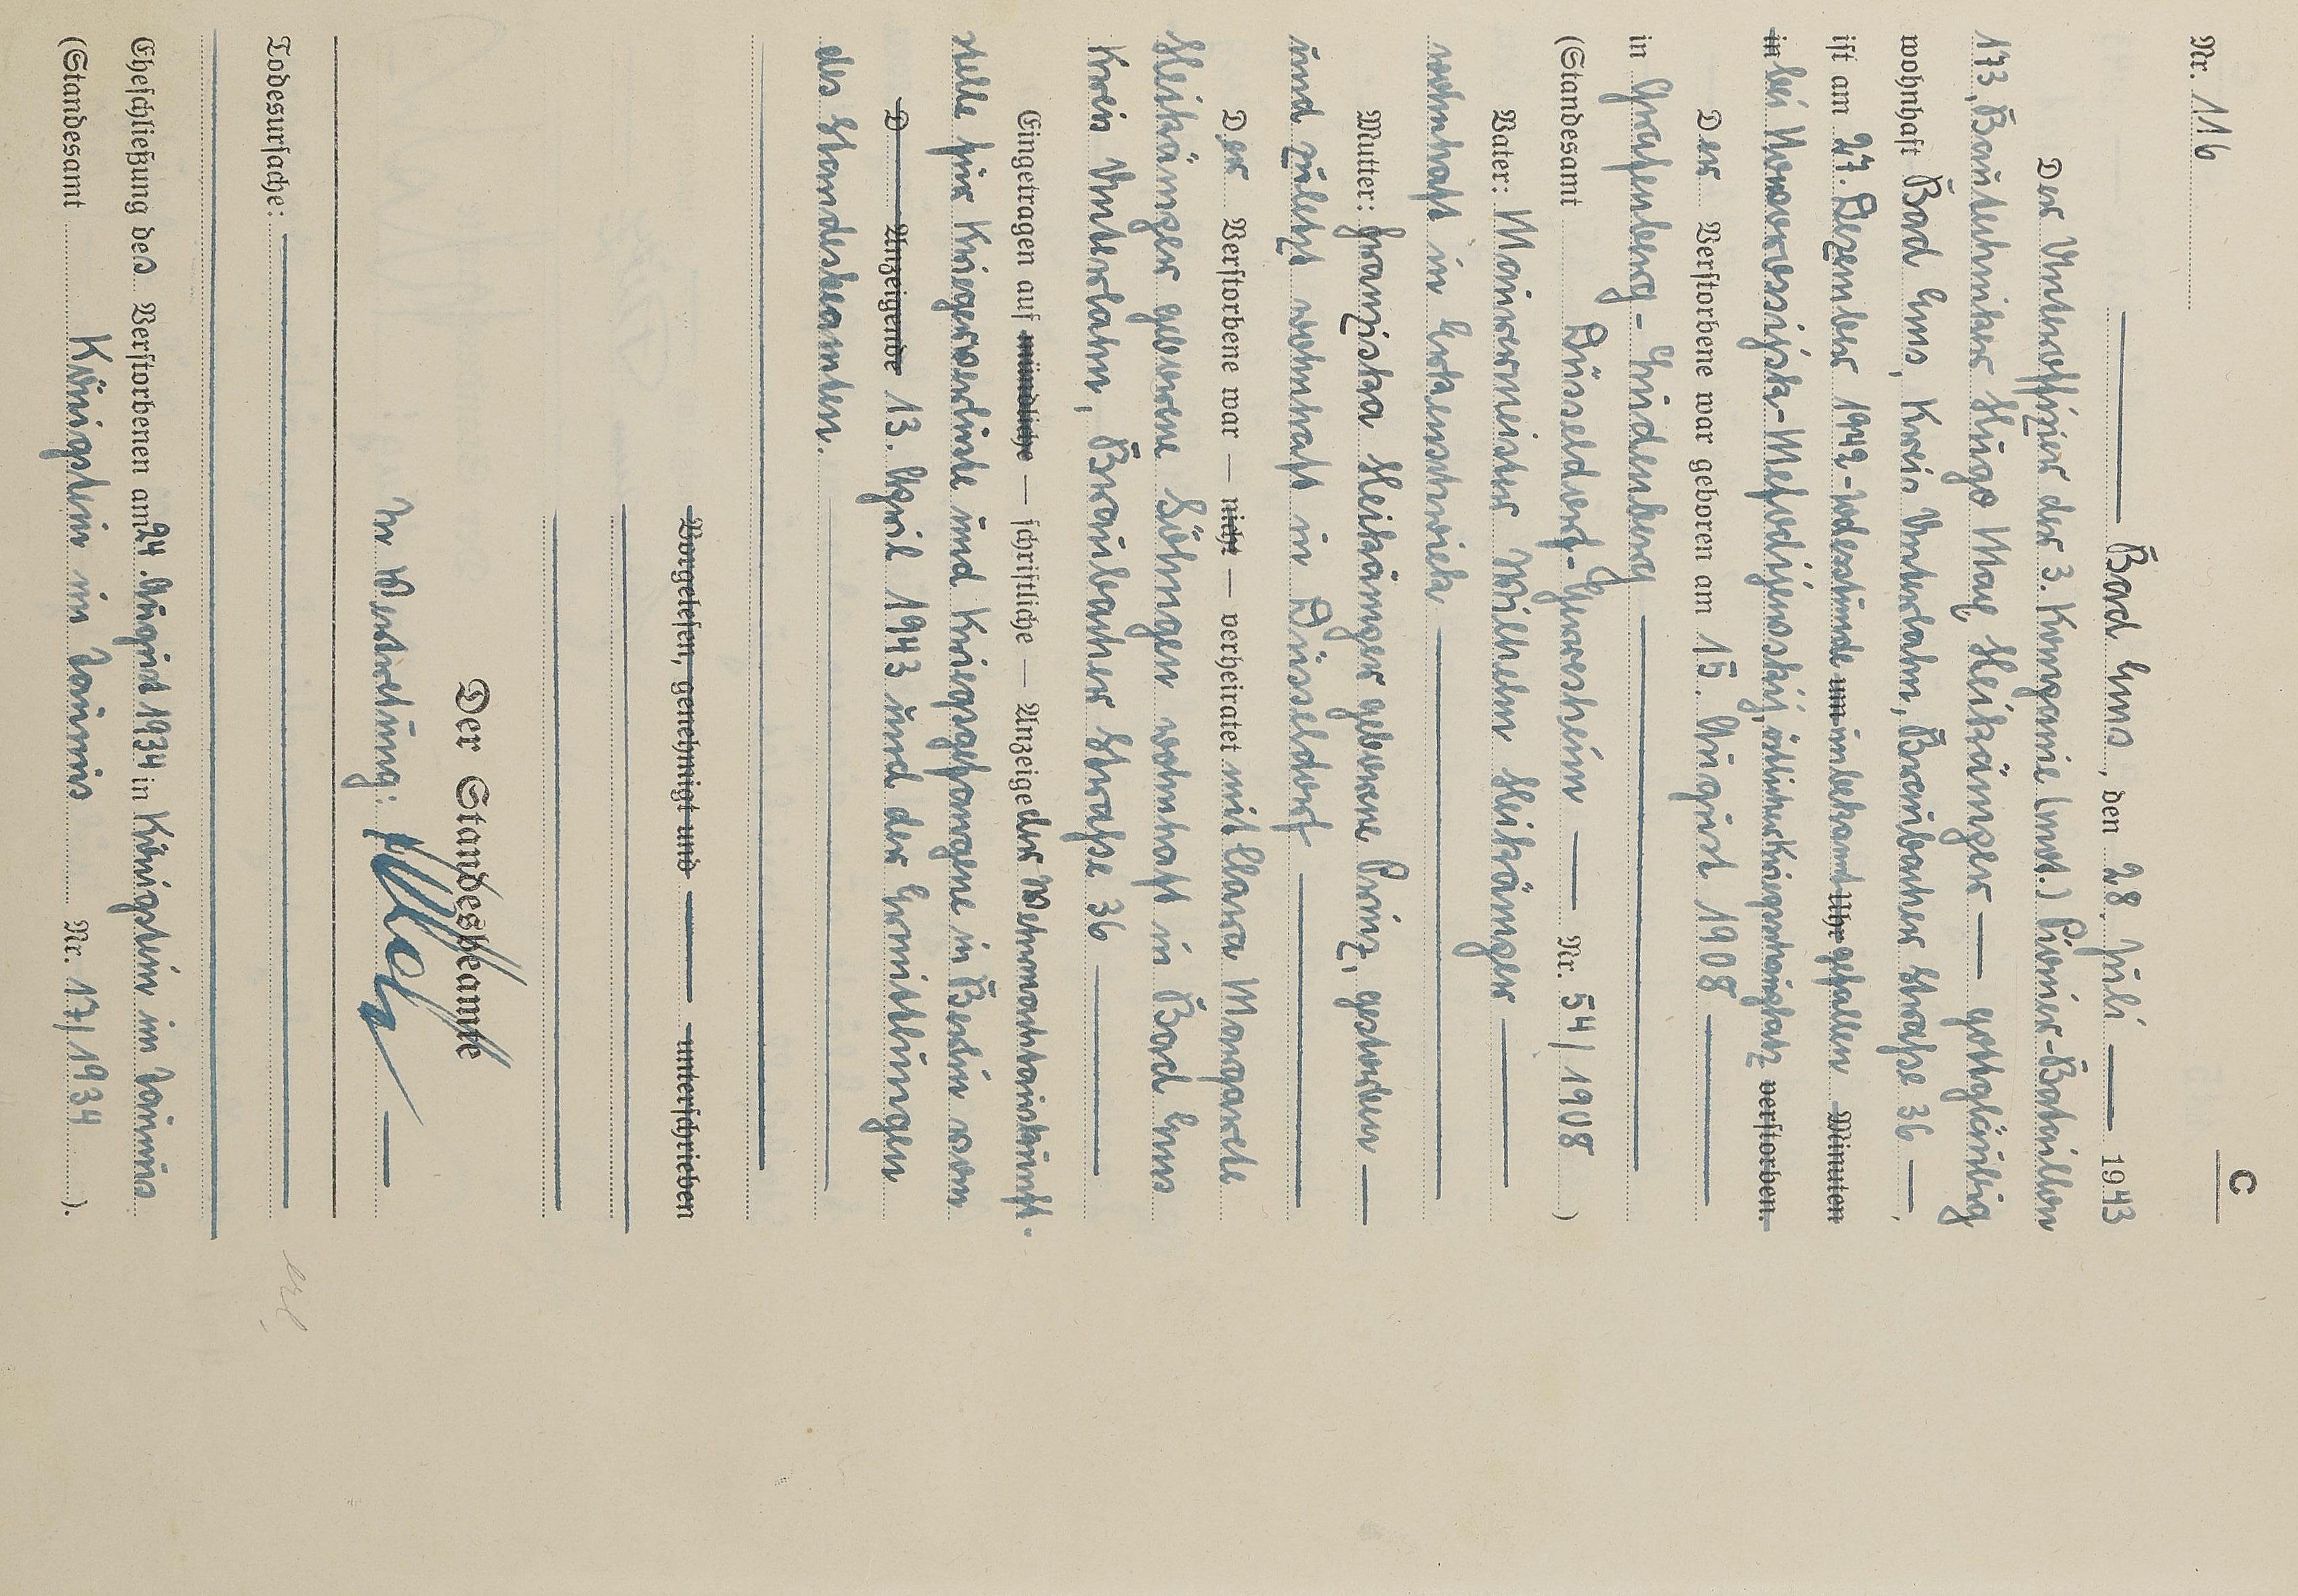 C
Nr. 116
Bad Ems, den 28. Juli 1943
Der Unteroffizier der 3. Kompanie (mot.) Pionier-Bataillon
173, Bautechniker Hugo Max Heikämper gottgläubig
wohnhaft Bad Ems, Kreis Unterlahn, Braubacher Straße 36,
ist am 27. Dezember 1942 - Todesstunde um unbekannt Uhr gefallen Minuten
in bei östlicher Kriegsschauplatz verstorben.
Der Verstorbene war geboren am 15. August 1908
in Grafenberg-Lindenberg
(Standesamt Düsseldorf-Gerresheim Nr. 54/1908)
Vater: Maurermeister Wilhelm Heikämper
wohnhaft in
Mutter: Franziska Heikämper geborene Prinz, gestorben
und zuletzt wohnhaft in Düsseldorf
Der Verstorbene war — nicht — verheiratet mit Clara Margarete
Heikämper geborene Böhngen wohnhaft in Bad Ems
Kreis Unterlahn, Braubacher Straße 36
Eingetragen auf mündliche — schriftliche — Anzeige der Wehrmachtauskunft-
stelle für Kriegerverluste und Kriegsgefangene in Berlin vom
D Anzeigende 13. April 1943 und der Ermittlungen
des Standesbeamten.
Vorgelesen, genehmigt und unterschrieben
Der Standesbeamte
In Vertretung:
Todesursache:
erl.
Eheschließung des Verstorbenen am 24. August 1934 in Königstein im Taunus
(Standesamt Königstein im Taunus Nr. 17/1934).